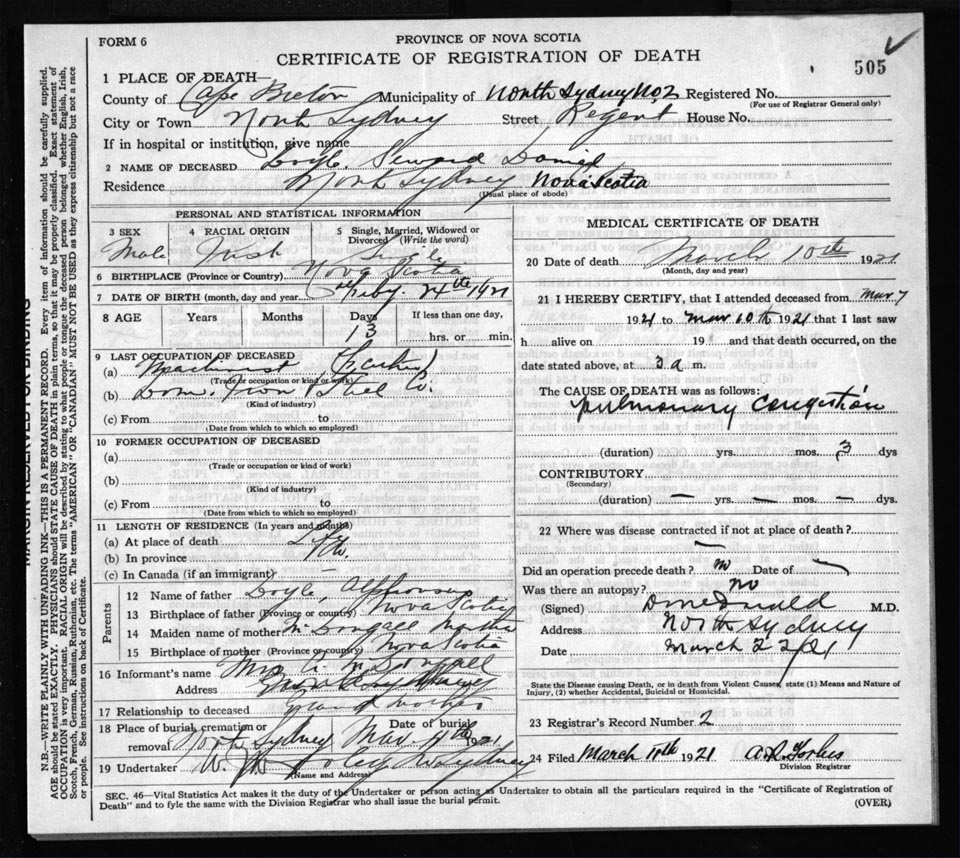 FORM 6
PROVINCE OF NOVA SCOTIA
CERTIFICATE OF REGISTRATION OF DEATH
505
1 PLACE OF DEATH—
County of Cape Breton Municipality of North Sydney No. 2 Registered No.
(For use of Registrar General only)
City or Town North Sydney Street Regent House No.
If in hospital or institution, give name
2 NAME OF DECEASED Doyle, Seward Daniel
Residence North Sydney Nova Scotia
(Usual place of abode)
PERSONAL AND STATISTICAL INFORMATION
3 SEX 4 RACIAL ORIGIN 5 Single, Married, Widowed or Divorced (Write the word)
Male Irish Single
6 BIRTHPLACE (Province or Country) Nova Scotia
7 DATE OF BIRTH (month, day and year) Feby. 24th 1921
8 AGE Years Months Days If less than one day,
13 hrs. or min.
9 LAST OCCUPATION OF DECEASED
(a) Machinist
(Trade or occupation or kind of work)
(b) Dom. Iron & Steel Co.
(Kind of industry)
(c) From to
(Date from which to which so employed)
10 FORMER OCCUPATION OF DECEASED
(a)
(Trade or occupation or kind of work)
(b)
(Kind of industry)
(c) From to
(Date from which to which so employed)
11 LENGTH OF RESIDENCE (In years and months)
(a) At place of death Life
(b) In province
(c) In Canada (if an immigrant) —
Parents
12 Name of father Doyle, Alphonsus
13 Birthplace of father (Province or country) Nova Scotia
14 Maiden name of mother McDougall
15 Birthplace of mother (Province or country) Nova Scotia
16 Informant's name Mrs A McDougall
Address North Sydney
17 Relationship to deceased Grand mother
18 Place of burial, cremation or removal North Sydney Date of burial Mar. 11th 1921
19 Undertaker N. Sydney
(Name and Address)
MEDICAL CERTIFICATE OF DEATH
20 Date of death March 10th 1921
(Month, day and year)
21 I HEREBY CERTIFY, that I attended deceased from Mar 7
1921 to Mar 10th 1921 that I last saw
h alive on 19 and that death occurred, on the
date stated above, at 3 a m.
The CAUSE OF DEATH was as follows:
Pulmonary Congestion
(duration) yrs. mos. 3 dys
CONTRIBUTORY
(Secondary)
(duration) — yrs. — mos. — dys.
22 Where was disease contracted if not at place of death?
—
Did an operation precede death? no Date of —
Was there an autopsy? no
(Signed) D McDonald M.D.
Address North Sydney
Date March 22/21
State the Disease causing Death, or in death from Violent Causes, state (1) Means and Nature of Injury, (2) whether Accidental, Suicidal or Homicidal.
23 Registrar's Record Number 2
24 Filed March 11th 1921 A. R. Forbes
Division Registrar
SEC. 46—Vital Statistics Act makes it the duty of the Undertaker or person acting as Undertaker to obtain all the particulars required in the "Certificate of Registration of
Death" and to fyle the same with the Division Registrar who shall issue the burial permit. (OVER)
MARGIN RESERVED FOR BINDING
N.B.—WRITE PLAINLY WITH UNFADING INK—THIS IS A PERMANENT RECORD. Every item of information should be carefully supplied.
AGE should be stated EXACTLY. PHYSICIANS should STATE CAUSE OF DEATH in plain terms, so that it may be properly classified. Exact statement of
OCCUPATION is very important. RACIAL ORIGIN will be described by stating to what people or tongue the deceased person belonged whether English, Irish,
Scotch, French, German, Russian, Ruthenian, etc. The terms "AMERICAN" OR "CANADIAN" MUST NOT BE USED as they express citizenship but not a race
or people. See instructions on back of Certificate.